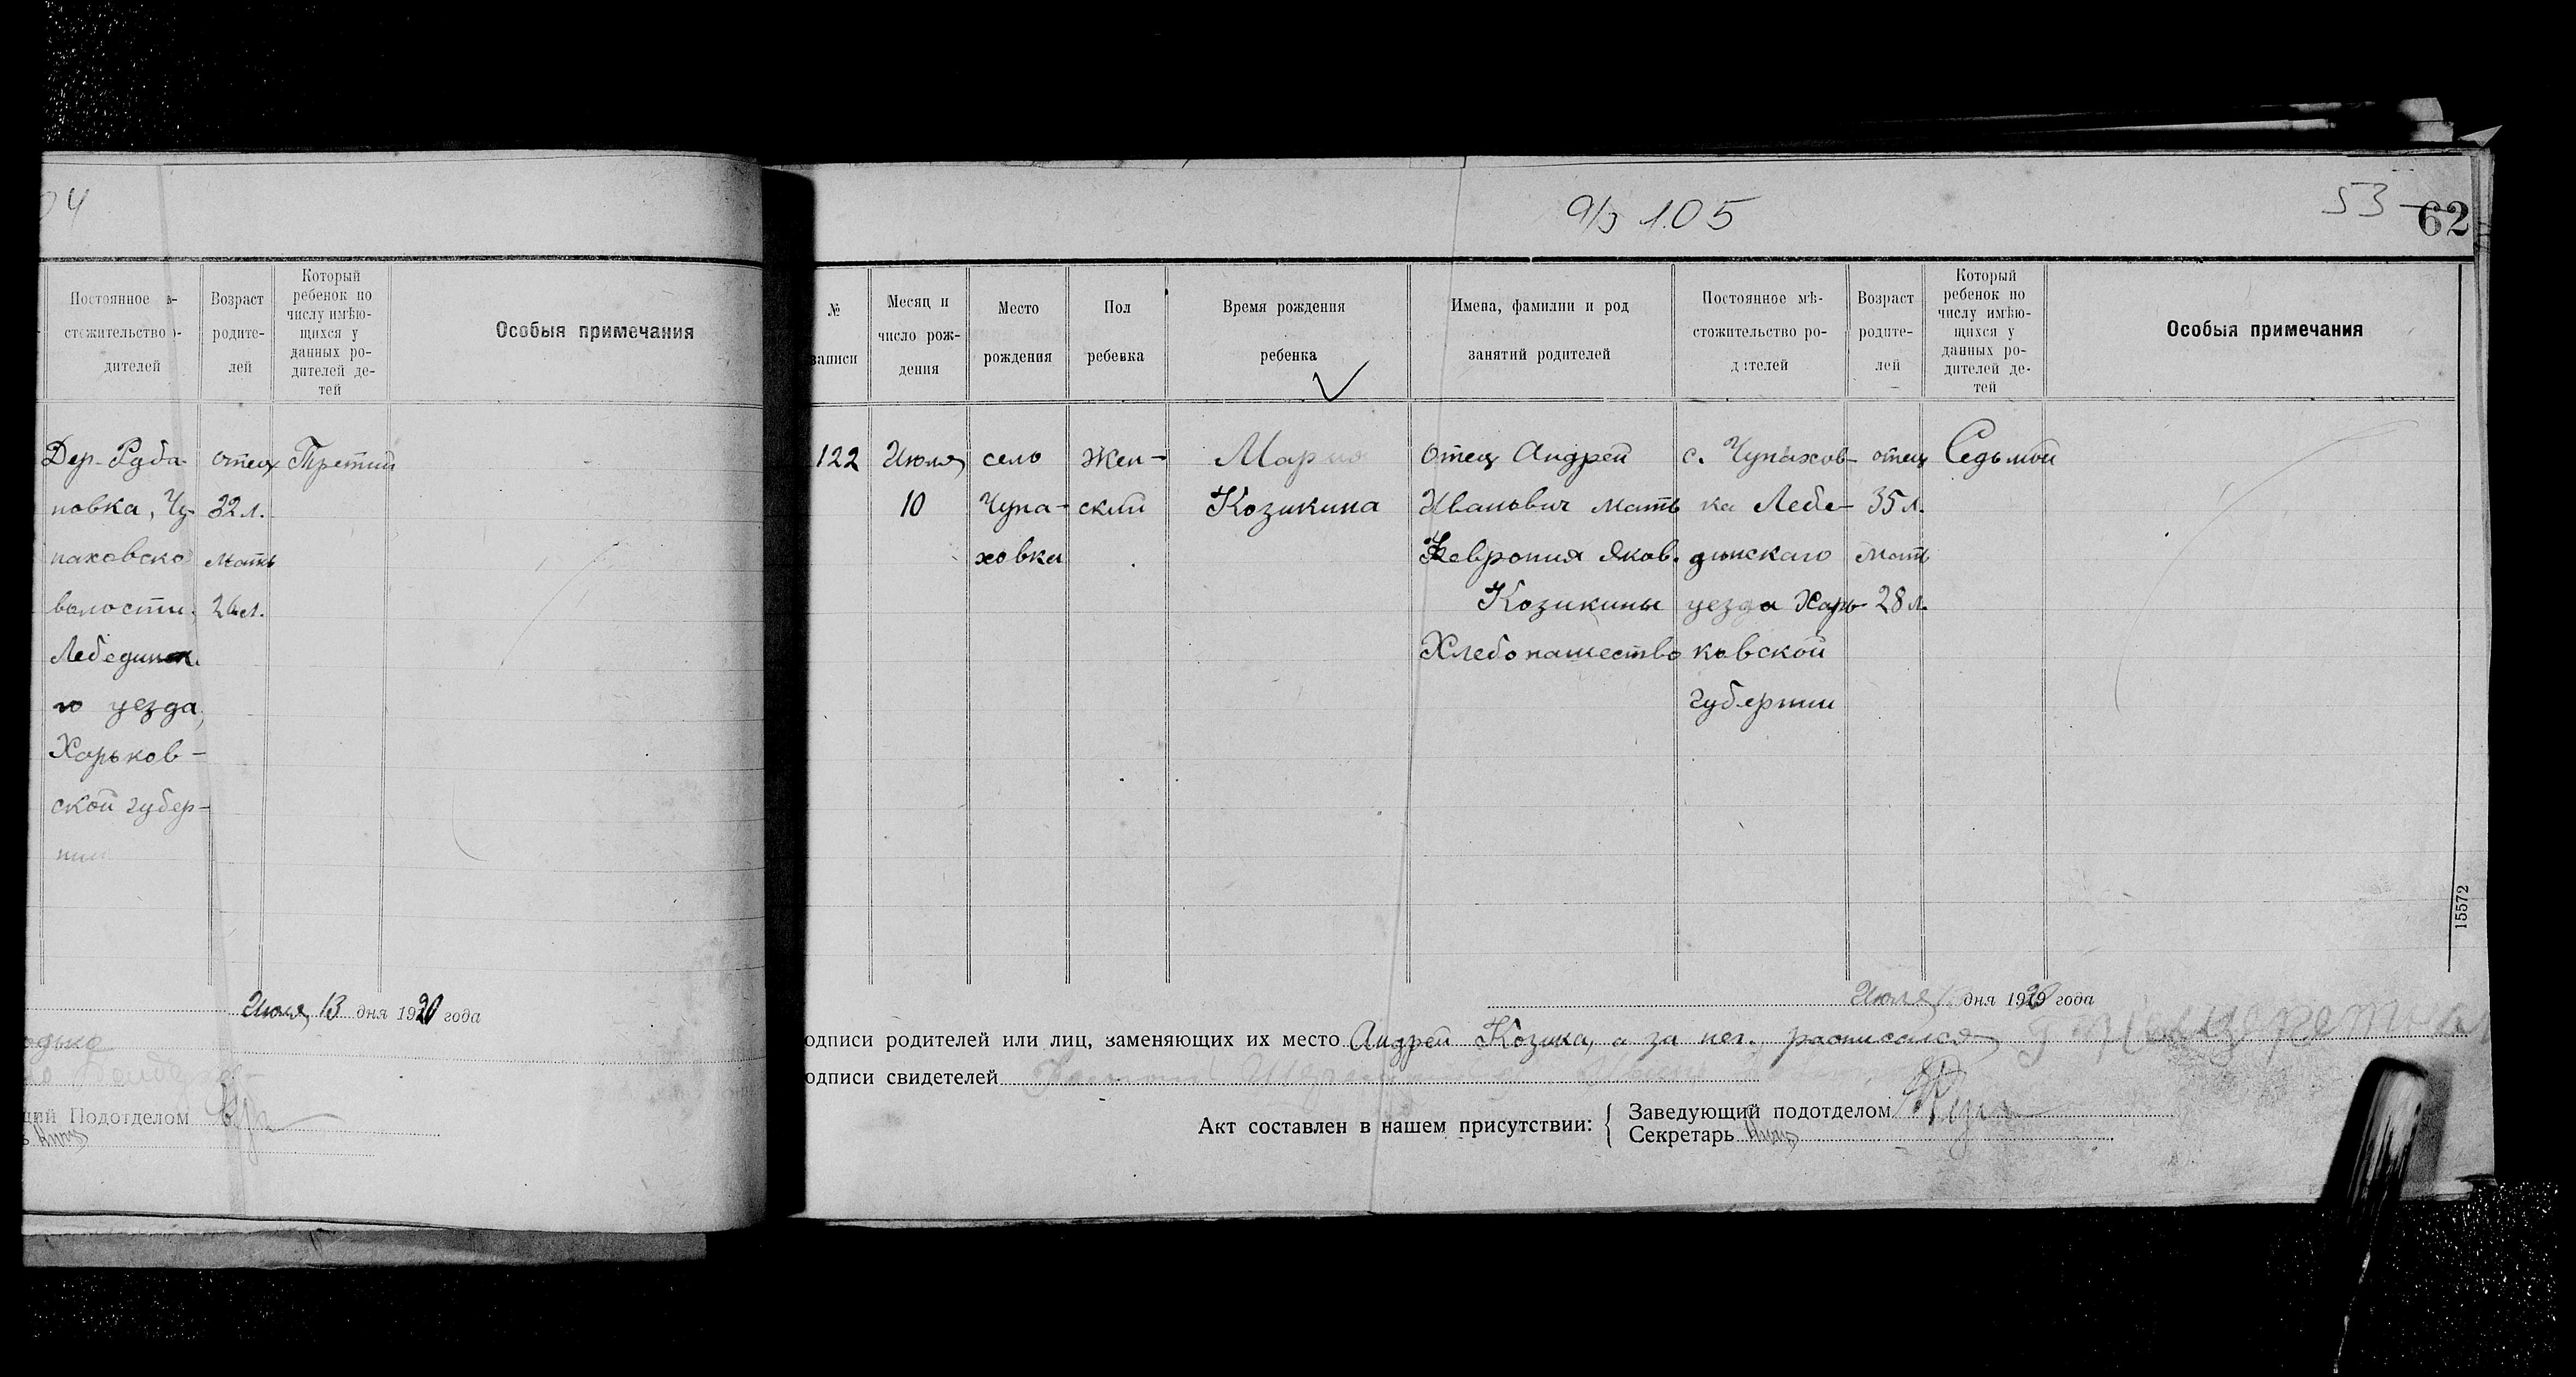 04
Постоянное
стожительство
дителей
Возраст
родите-
лей
Который
ребенок по
числу имѣю-
щихся у
данных ро-
дителей де-
тей
Особыя примечания
Дер. Рдба-
повка, Чу-
паховско
волости,
Лебединск.
го уезда,
Харьков-
ской губер-
нии
отец
32 л.
мать
26 л.
Третий
Июля, 13 дня 1920 года
щий Подотделом
9/з 105
53
62
№
записи
Месяц и
число рож-
дения
Место
рождения
Пол
ребенка
Время рождения
ребенка
Имена, фамилии и род
занятий родителей
Постоянное мѣ-
стожительство ро-
дителей
Возраст
родите-
лей
Который
ребенок по
числу имѣю-
щихся у
данных ро-
дителей де-
тей
Особыя примечания
122
Июля,
10
село
Чупа-
ховка
Жен-
ский
Мария
Козикина
Отец Андрей
Иванович мать
Феврония Яков.
Козикины
Хлебопашество
с. Чупахов-
ка Лебе-
динскаго
уезда Харь-
ковской
губернии
отец
35 л.
мать
28 л.
Седьмой
15572
Июля, дня 1920 года
одписи родителей или лиц, заменяющих их место Андрей Козика, а за нег. расписался
одписи свидетелей
Акт составлен в нашем присутствии:
Заведующий подотделом
Секретарь